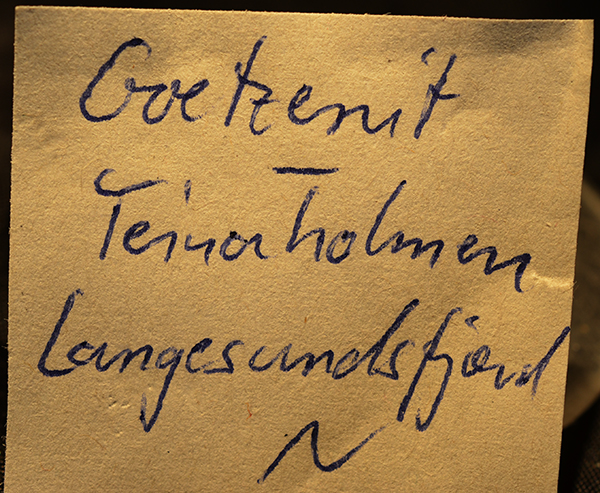 Goetzenit
–
Teinaholmen
Langesundsfjord
N